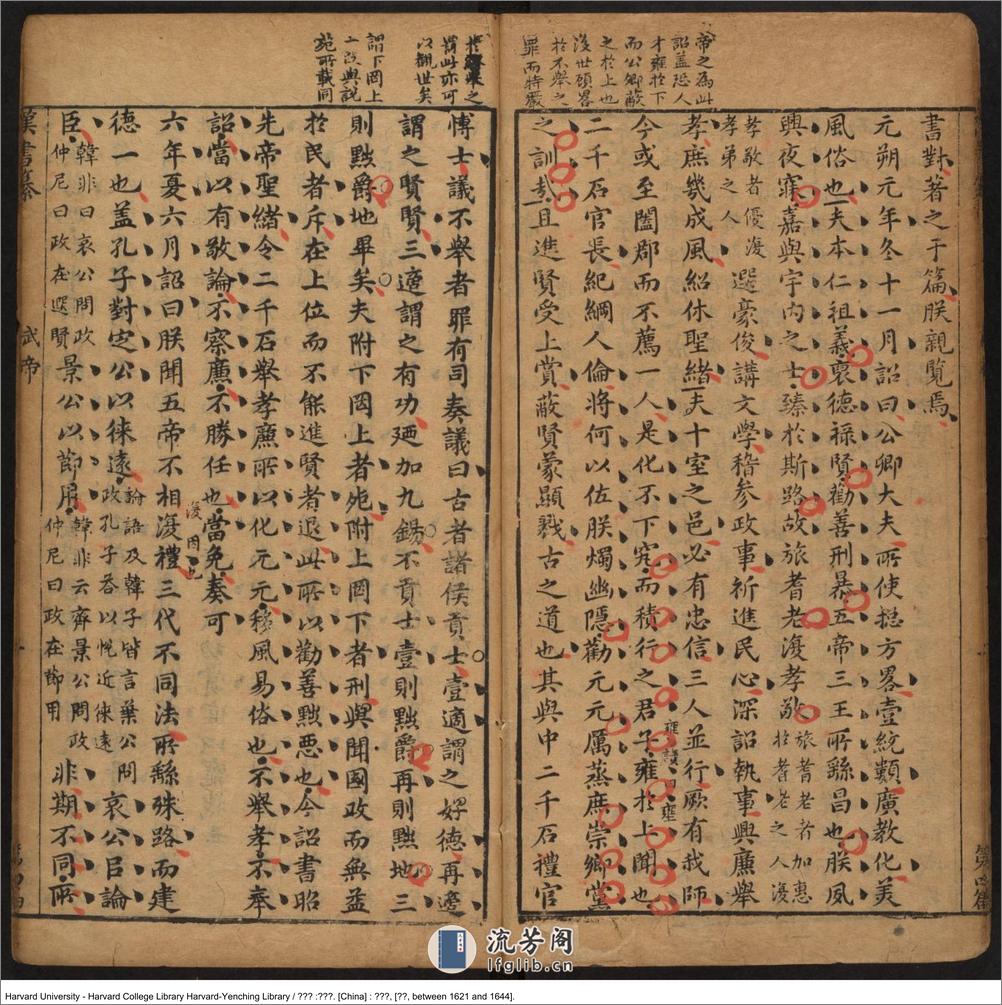 帝之為此
詔蓋恐人
才雍於下
而公卿蔽
之於上也
後世頒畧
於不舉之
罪而特嚴
書對著之于篇朕親覽焉
元朔元年冬十一月詔曰公卿大夫所使揔方畧壹統類廣教化美
風俗也夫本仁祖義襃德祿賢勸善刑暴五帝三王所繇昌也朕夙
興夜寐嘉與宇內之士臻於斯路故旅耆老復孝敬旅耆老者加惠於耆老之人復
孝敬者優復孝弟之人選豪俊講文學稽參政事祈進民心深詔執事興廉舉
孝庶幾成風紹休聖緒夫十室之邑必有忠信三人並行厥有我師
今或至闔郡而不薦一人是化不下究而積行之君子雍於上聞也
雍讀曰壅
二千石官長紀綱人倫將何以佐朕燭幽隱勸元元厲蒸庶崇鄉黨
之訓哉且進賢受上賞蔽賢蒙顯戮古之道也其與中二千石禮官
第四冊
之
謂此亦可
以觀世矣
謂下罔上
二段與說
苑所載同
愽士議不舉者罪有司奏議曰古者諸侯貢士壹適謂之好德再適
謂之賢賢三適謂之有功廼加九錫不貢士壹則黜爵再則黜地三
則黜爵地畢矣夫附下罔上者死附上罔下者刑與聞國政而無益
於民者斥在上位而不能進賢者退此所以勸善黜惡也今詔書昭
先帝聖緒令二千石舉孝廉所以化元元移風易俗也不舉孝不奉
詔當以不敬論不察廉不勝任也當免奏可
六年夏六月詔曰朕聞五帝不相復禮三代不同法所繇殊路而建
德一也蓋孔子對定公以徠遠論語及韓子皆言葉公問政孔子荅以悅近徠遠哀公㠯論
臣韓非曰哀公問政仲尼曰政在選賢景公以節用韓非云齊景公問政仲尼曰政在節用非期不同所
漢書纂
武帝